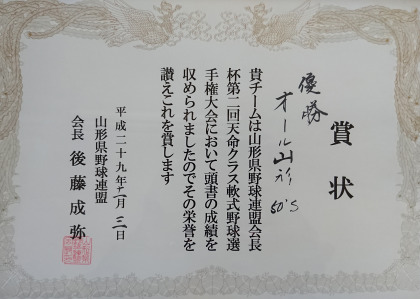 賞状
優勝
オール山形 50'S
貴チームは山形県野球連盟会長
杯第二回天命クラス軟式野球選
手権大会において頭書の成績を
収められましたのでその栄誉を
讃えこれを賞します
平成二十九年 月 日
山形県野球連盟
会長 後藤成弥